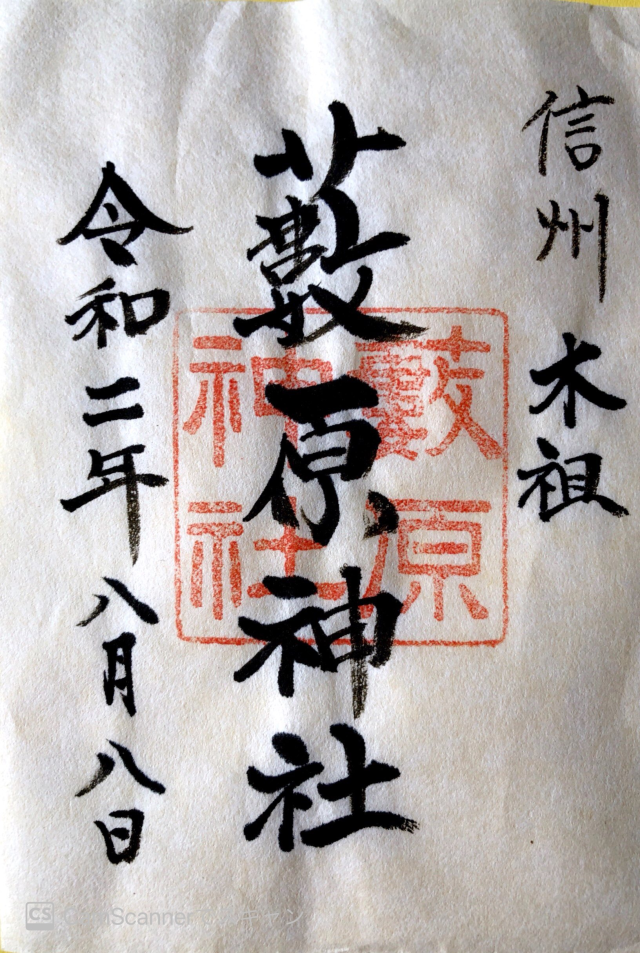 信州 木祖
藪原神社
令和二年 八月八日
藪原
神社
CS CamScanner でスキャン